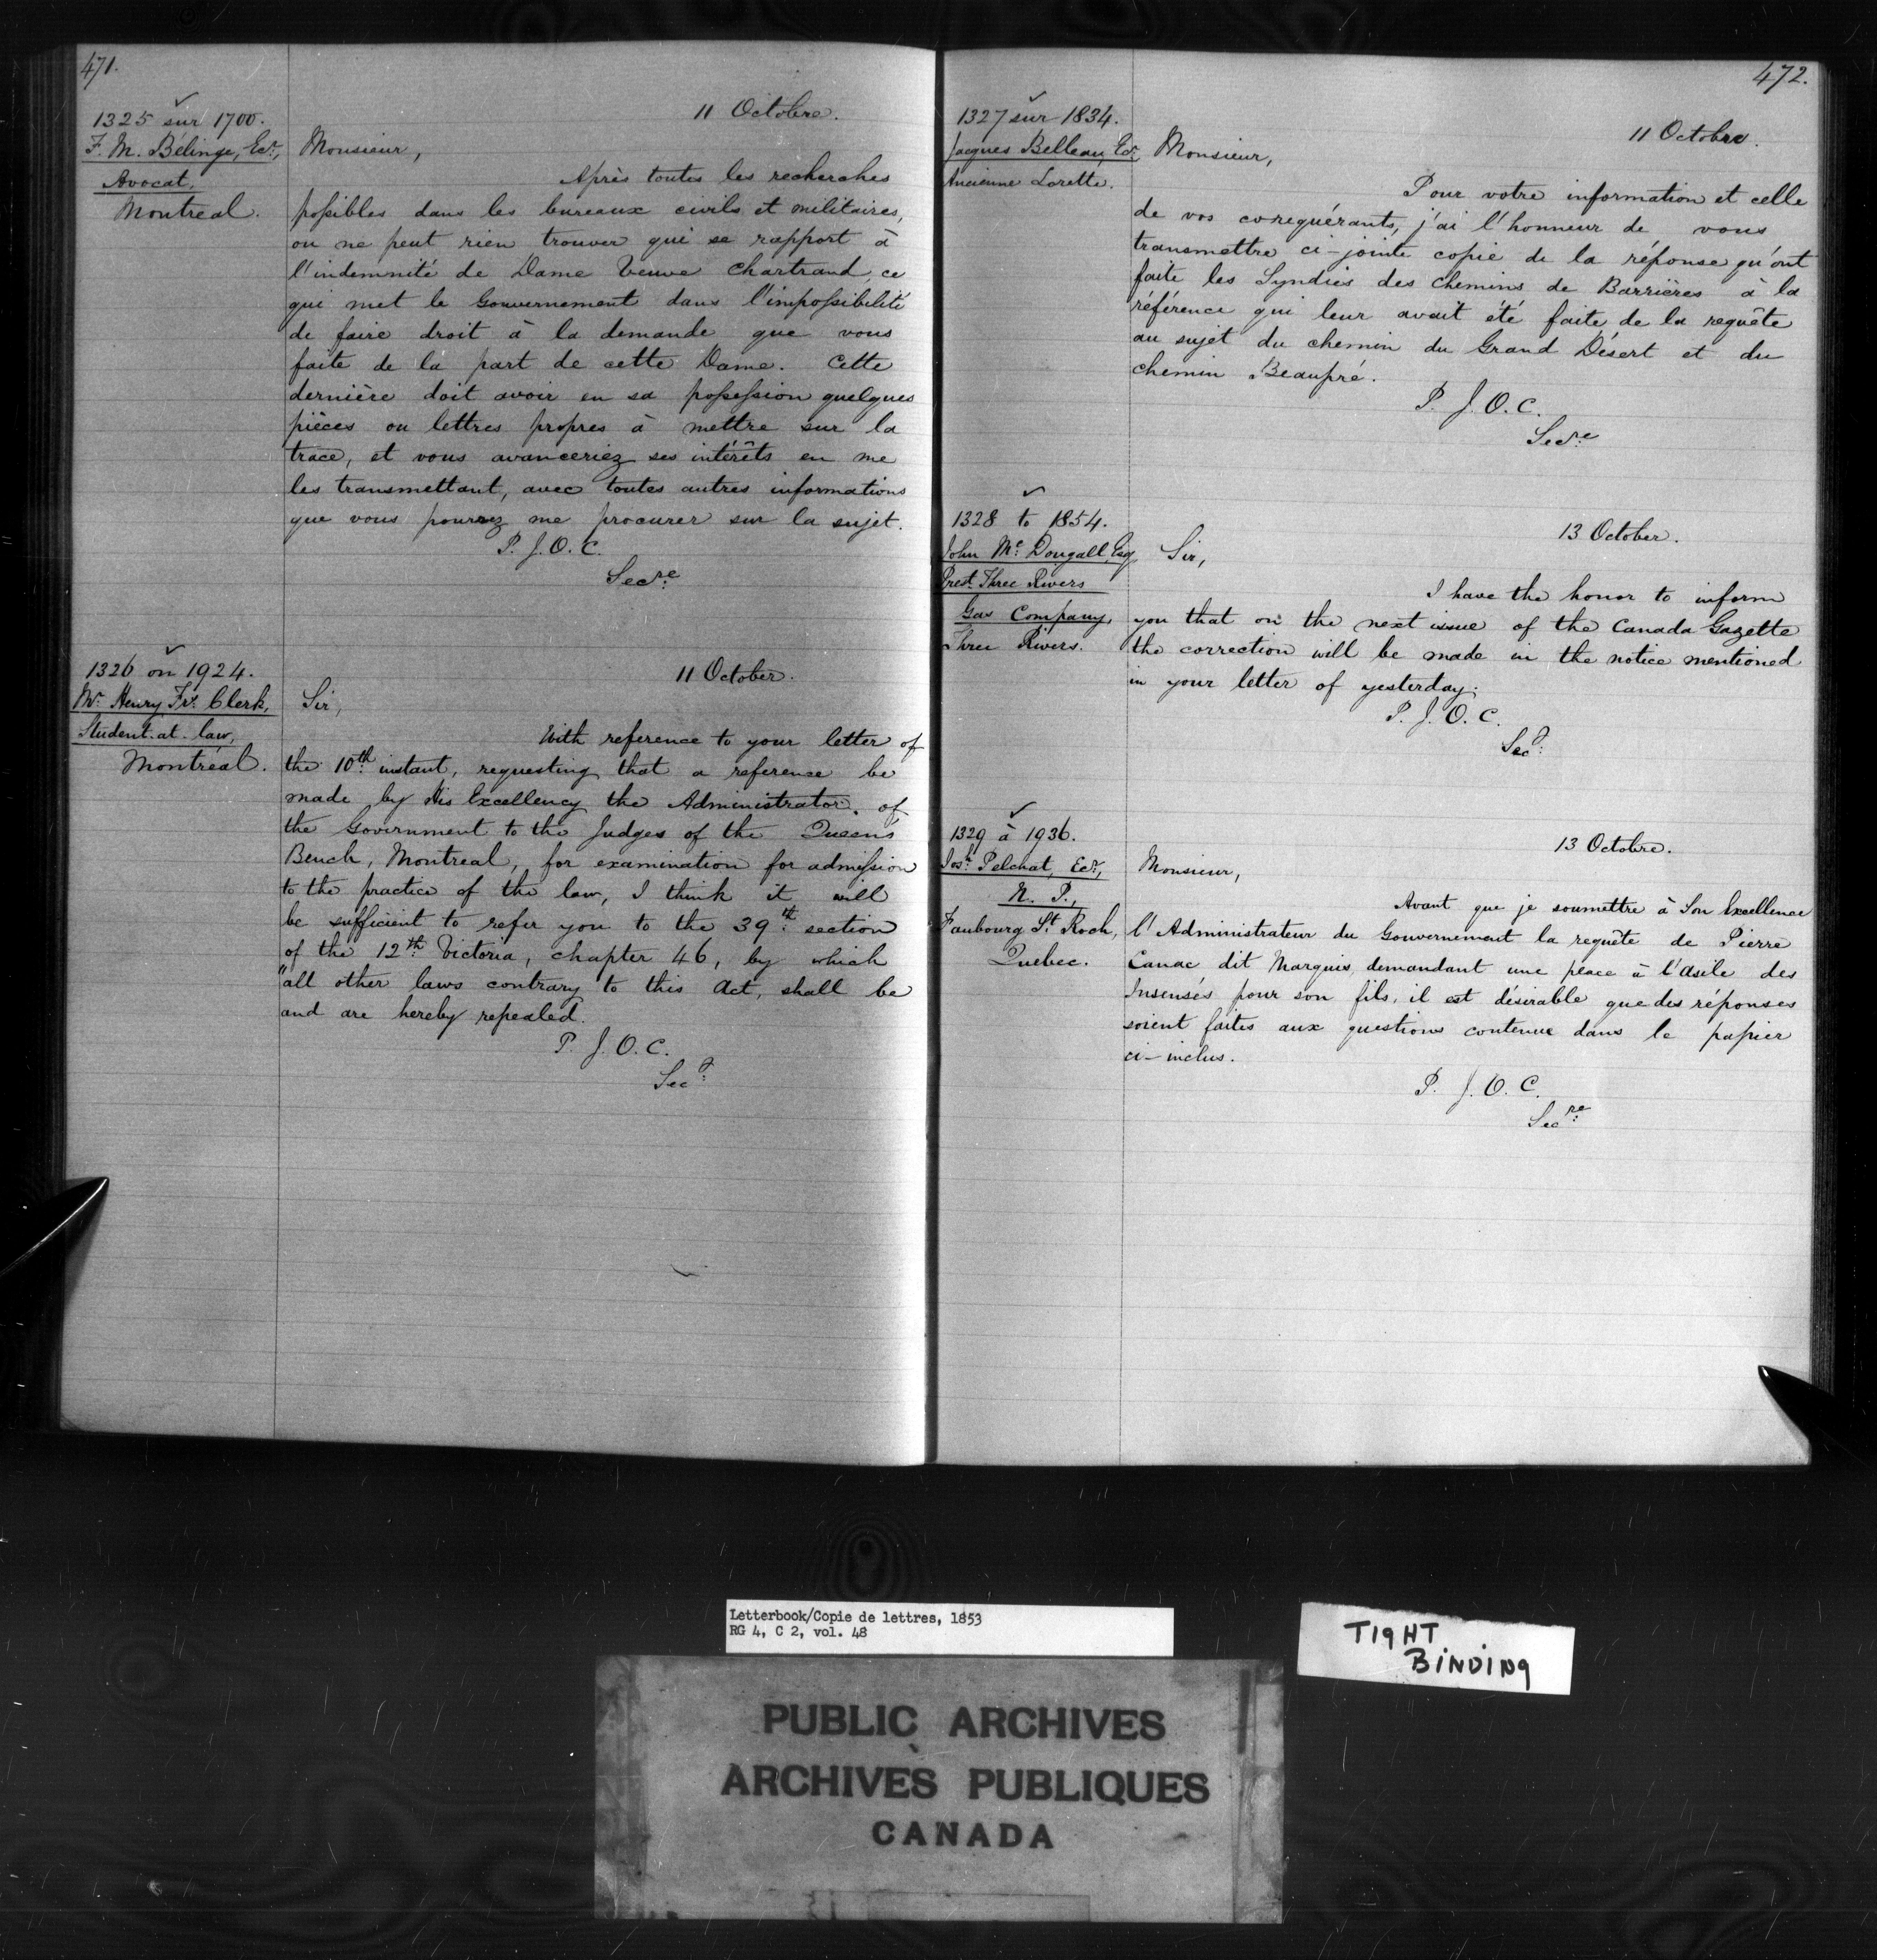 471.
1325 sur 1700.
F. M. Bélinge, Ecr,
Avocat,
Montreal.
11 Octobre.
Monsieur,
Après toutes les recherches
possibles dans les bureaux civils et militaires,
on ne peut rien trouver qui se rapport à
l'indemnité de Dame Veuve Chartrand, ce
qui met le Gouvernement dans l'impossibilité
de faire droit à la demande que vous
faite de la part de cette Dame. Cette
dernière doit avoir en sa possession quelques
pièces ou lettres propres à mettre sur la
trace, et vous avanceriez ses intérêts en me
les transmettant, avec toutes autres informations
que vous pourrez me procurer sur la sujet.
P. J. O. C.
Secre
1326 on 1924.
Mr. Henry Frs. Clerk,
Student-at-law,
Montréal.
11 October.
Sir,
With reference to your letter of
the 10th instant, requesting that a reference be
made by His Excellency the Administrator of
the Government to the Judges of the Queen's
Bench, Montreal, for examination for admission
to the practice of the law, I think it will
be sufficient to refer you to the 39th section
of the 12th Victoria, chapter 46, by which
"all other laws contrary to this Act, shall be
and are hereby repealed.
P. J. O. C.
Secy
472.
1327 sur 1834.
Jacques Belleau, Ecr
Ancienne Lorette.
11 Octobre.
Monsieur,
Pour votre information et celle
de vos corequérants, j'ai l'honneur de vous
transmettre ci-jointe copie de la réponse qu'ont
faite les Syndics des chemins de Barrières à la
référence qui leur avait été faite de la requête
au sujet du chemin du Grand Désert et du
chemin Beaupré.
P. J. O. C.
Secre
1328 to 1854.
John McDougall, Esq
Prest. Three Rivers
Gas Company,
Three Rivers.
13 October.
Sir,
I have the honor to inform
you that on the next issue of the Canada Gazette
the correction will be made in the notice mentioned
in your letter of yesterday.
P. J. O. C.
Secy
1329 à 1936.
Josh. Pelchat, Ecr,
N. P.,
Faubourg St. Roch,
Quebec.
13 Octobre.
Monsieur,
Avant que je soumettre à Son Excellence
l'Administrateur du Gouvernement la requête de Pierre
Canac dit Marquis, demandant une place à l'Asile des
Insensés pour son fils, il est désirable que des réponses
soient faites aux questions contenue dans le papier
ci-inclus.
P. J. O. C.
Secre
Letterbook/Copie de lettres, 1853
RG 4, C 2, vol. 48
TIGHT
BINDING
PUBLIC ARCHIVES
ARCHIVES PUBLIQUES
CANADA